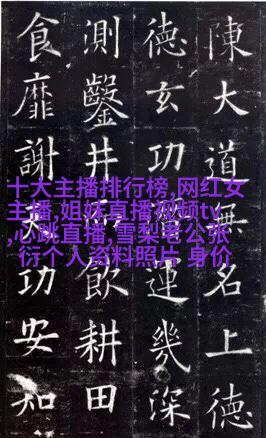 陳大道無名上德
德玄功運幾深
測鑿井飲耕田
食靡謝功安知
十大主播排行榜,网红女
主播,姐妹直播视频tv
,心跳直播,雪梨老公张
衍个人资料照片 身价